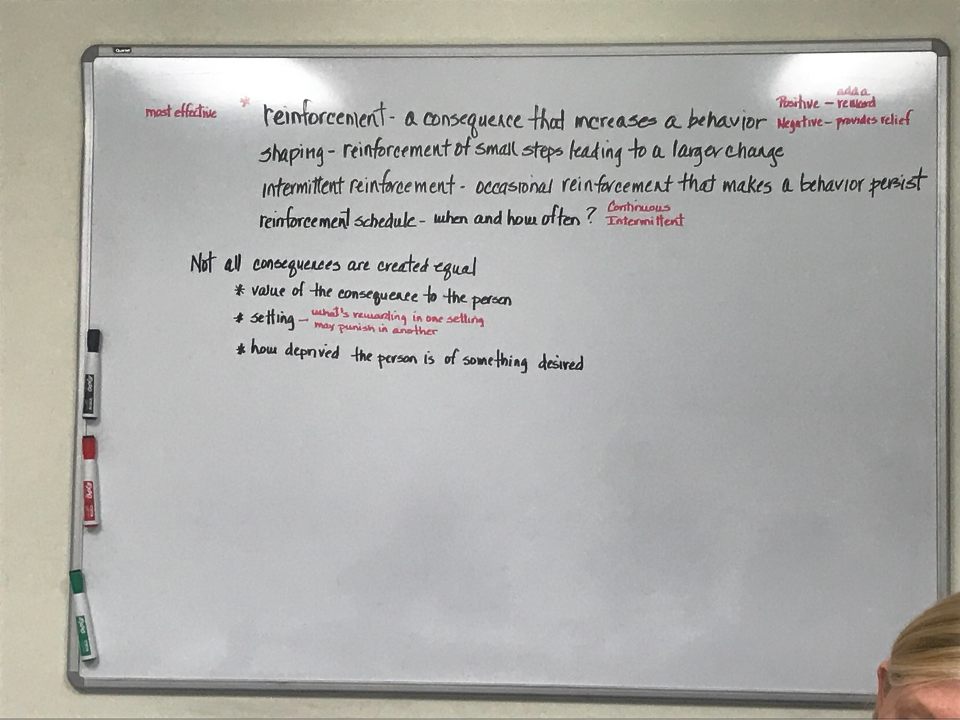 Quartet
most effective * reinforcement - a consequence that increases a behavior
add a
Positive - reward
Negative - provides relief
shaping - reinforcement of small steps leading to a larger change
intermittent reinforcement - occasional reinforcement that makes a behavior persist
reinforcement schedule - when and how often? Continuous
Intermittent
Not all consequences are created equal
* value of the consequence to the person
* setting - what's rewarding in one setting
may punish in another
* how deprived the person is of something desired
EXPO
EXPO
EXPO